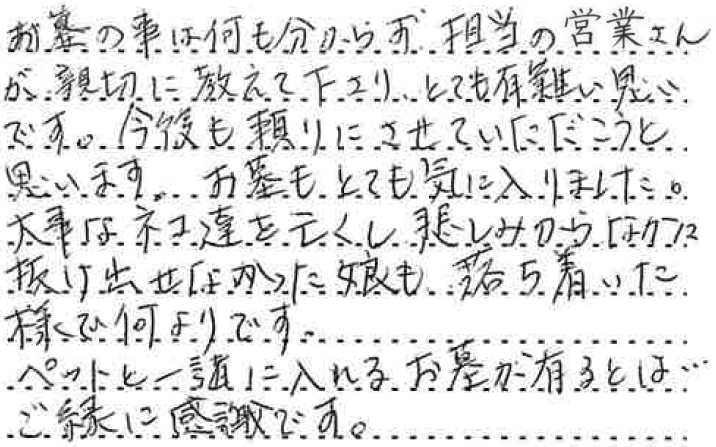 お墓の事は何も分からず、担当の営業さん
が、親切に教えて下さり、とても有難い思い
です。今後も頼りにさせていただこうと
思います。お墓もとても気に入りました。
大事なネコ達を亡くし悲しみからなかなか
抜け出せなかった娘も、落ち着いた
様で何よりです。
ペットと一諸に入れるお墓が有るとは…
ご縁に感謝です。